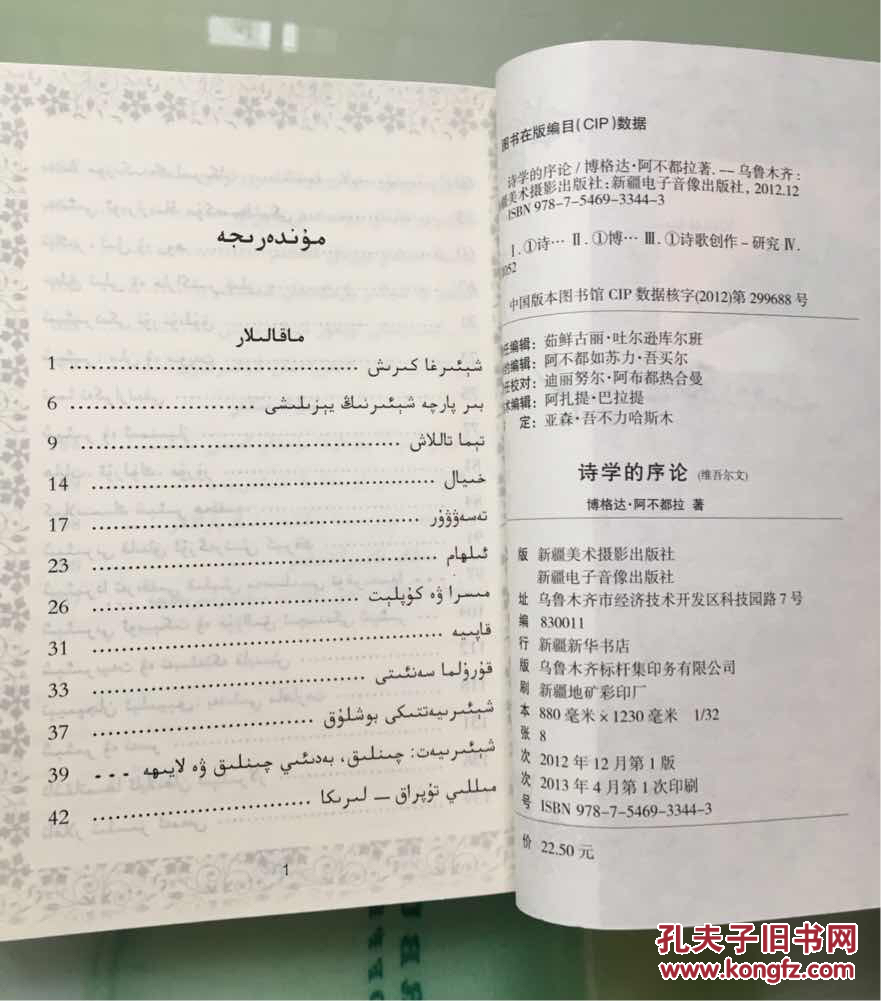 مۇندەرىجە
ماقالىلار
شېئىرغا كىرىش ........................................ 1
بىر پارچە شېئىرنىڭ يېزىلىشى ........................ 6
تېما تاللاش ........................................ 9
خىيال ........................................ 14
تەسەۋۋۇر ........................................ 17
ئىلھام ........................................ 23
مىسرا ۋە كۇپلېت ........................................ 26
قاپىيە ........................................ 31
قۇرۇلما سەنئىتى ........................................ 33
شېئىرىيەتتىكى بوشلۇق ........................................ 37
شېئىرىيەت: چىنلىق، بەدىئىي چىنلىق ۋە لايىھە --- 39
مىللىي تۇپراق — لىرىكا ........................ 42
1
图书在版编目(CIP)数据
诗学的序论/博格达·阿不都拉著.--乌鲁木齐:
美术摄影出版社:新疆电子音像出版社,2012.12
ISBN 978-7-5469-3344-3
Ⅰ.①诗… Ⅱ.①博… Ⅲ.①诗歌创作-研究 Ⅳ.
052
中国版本图书馆 CIP 数据核字(2012)第 299688 号
任编辑:茹鲜古丽·吐尔逊库尔班
编辑:阿不都如苏力·吾买尔
任校对:迪丽努尔·阿布都热合曼
术编辑:阿扎提·巴拉提
定:亚森·吾不力哈斯木
诗学的序论 (维吾尔文)
博格达·阿不都拉 著
版 新疆美术摄影出版社
新疆电子音像出版社
址 乌鲁木齐市经济技术开发区科技园路7号
编 830011
行 新疆新华书店
版 乌鲁木齐标杆集印务有限公司
刷 新疆地矿彩印厂
本 880 毫米×1230 毫米 1/32
张 8
次 2012 年 12 月第 1 版
次 2013 年 4 月第 1 次印刷
号 ISBN 978-7-5469-3344-3
价 22.50 元
孔夫子旧书网
www.kongfz.com